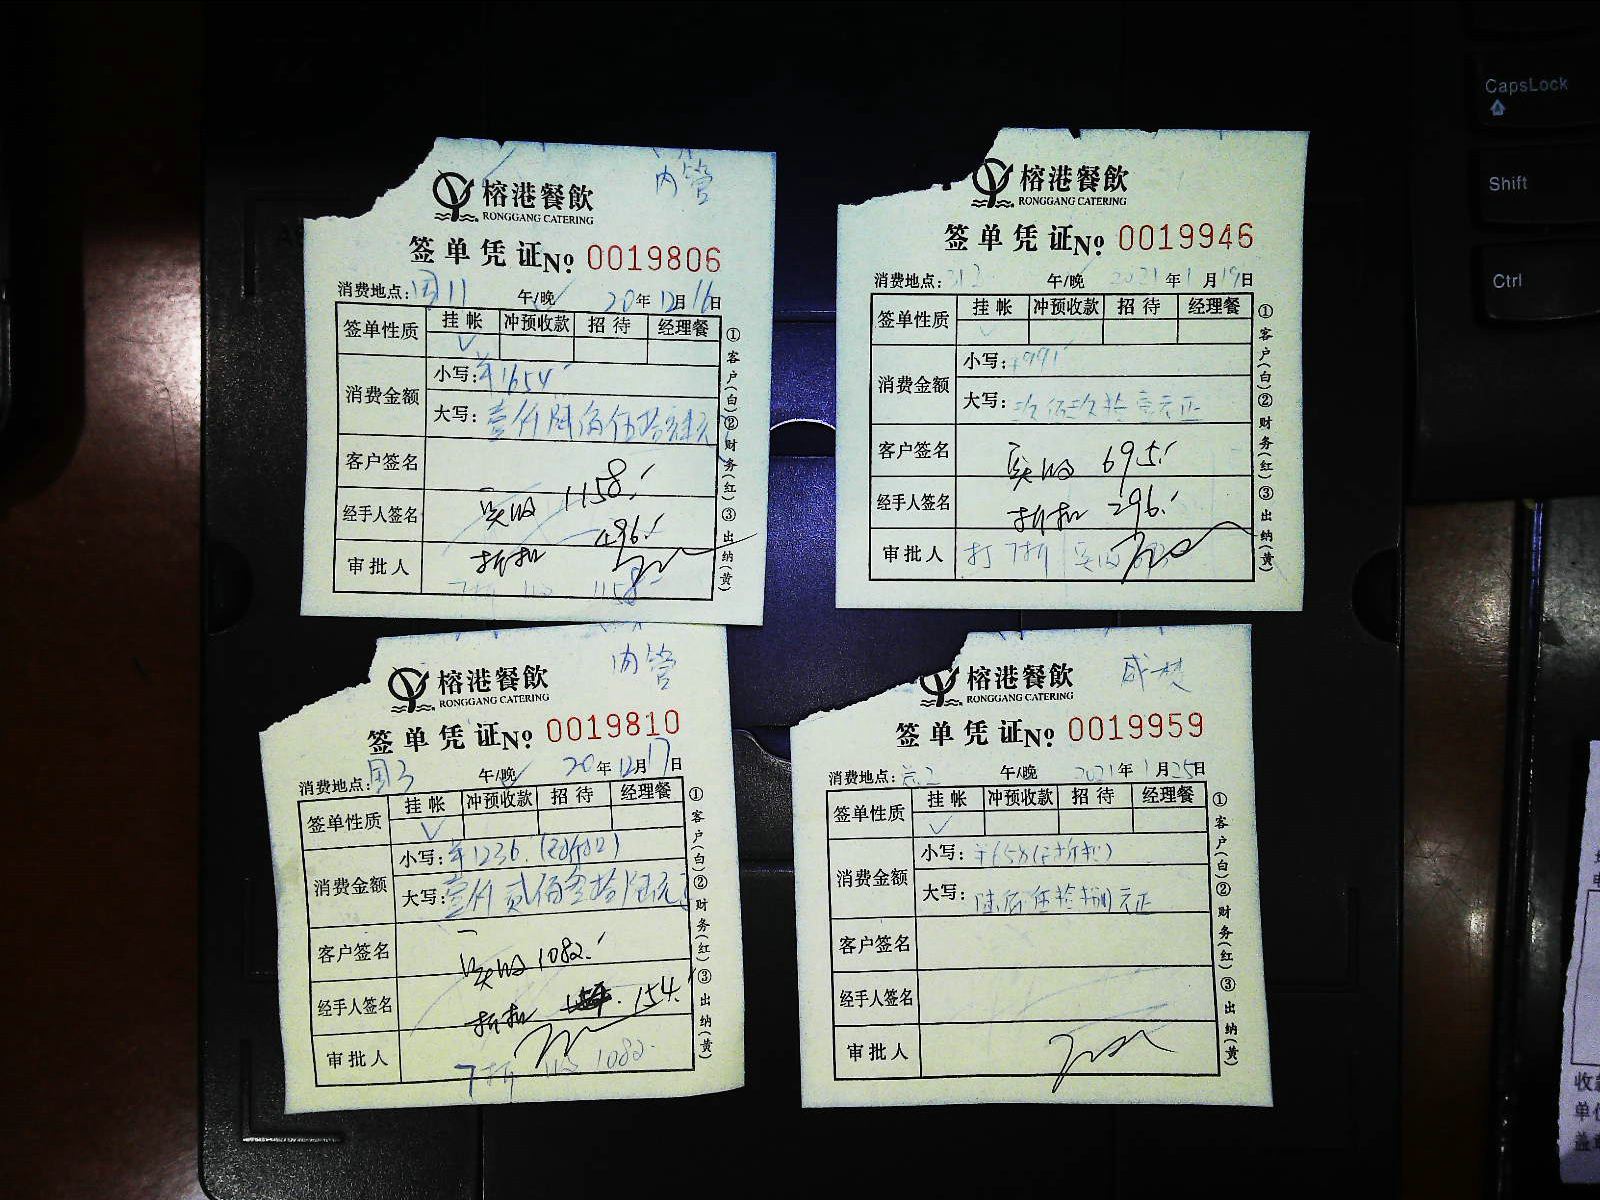 内管
榕港餐飲
RONGGANG CATERING
签单凭证No. 0019806
消费地点: 国11 午/晚 20年12月16日
签单性质 挂帐 冲预收款 招待 经理餐
消费金额
小写: ¥1654
大写: 壹仟陆佰伍拾肆元
客户签名
实收 1158.
经手人签名
折扣 496.
审批人
7折 实收 1158
①客户(白)②财务(红)③出纳(黄)
榕港餐飲
RONGGANG CATERING
签单凭证No. 0019946
消费地点: 312 午/晚 2021年1月19日
签单性质 挂帐 冲预收款 招待 经理餐
消费金额
小写: ¥991
大写: 玖佰玖拾壹元正
客户签名
实收 695.
经手人签名
折扣 296.
审批人 打7折 实收
①客户(白)②财务(红)③出纳(黄)
内管
榕港餐飲
RONGGANG CATERING
签单凭证No. 0019810
消费地点: 国3 午/晚 20年12月17日
签单性质 挂帐 冲预收款 招待 经理餐
消费金额
小写: ¥1236.
大写: 壹仟贰佰叁拾陆元
客户签名
实收 1082.
经手人签名
折扣 154.
审批人
7折 实收 1082.
①客户(白)②财务(红)③出纳(黄)
榕港餐飲
RONGGANG CATERING
签单凭证No. 0019959
消费地点: 午/晚 2021年1月25日
签单性质 挂帐 冲预收款 招待 经理餐
消费金额
小写: ¥658
大写: 陆佰伍拾捌元正
客户签名
经手人签名
审批人
①客户(白)②财务(红)③出纳(黄)
CapsLock
Shift
Ctrl